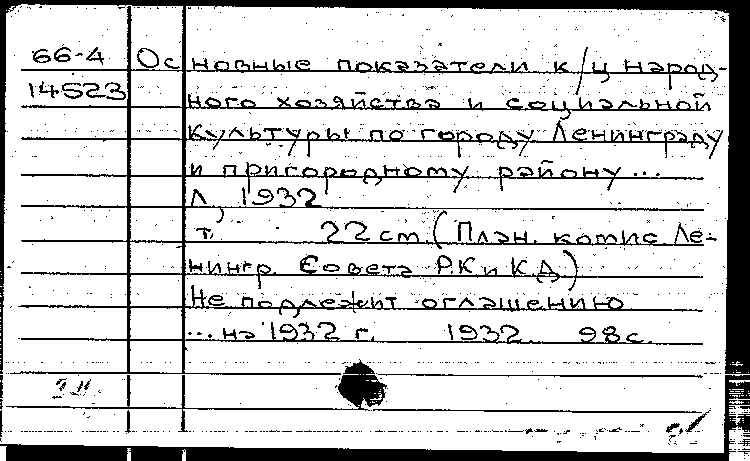 66-4 Основные показатели к/ц народ-
14523 ного хозяйства и социальной
культуры по городу Ленинграду
и пригородному району...
Л, 1932
т. 22 см. (План. комис Ле-
нингр. Совета Р.К и К.Д.)
Не подлежит оглашению
... на 1932 г. 1932. 98 с.